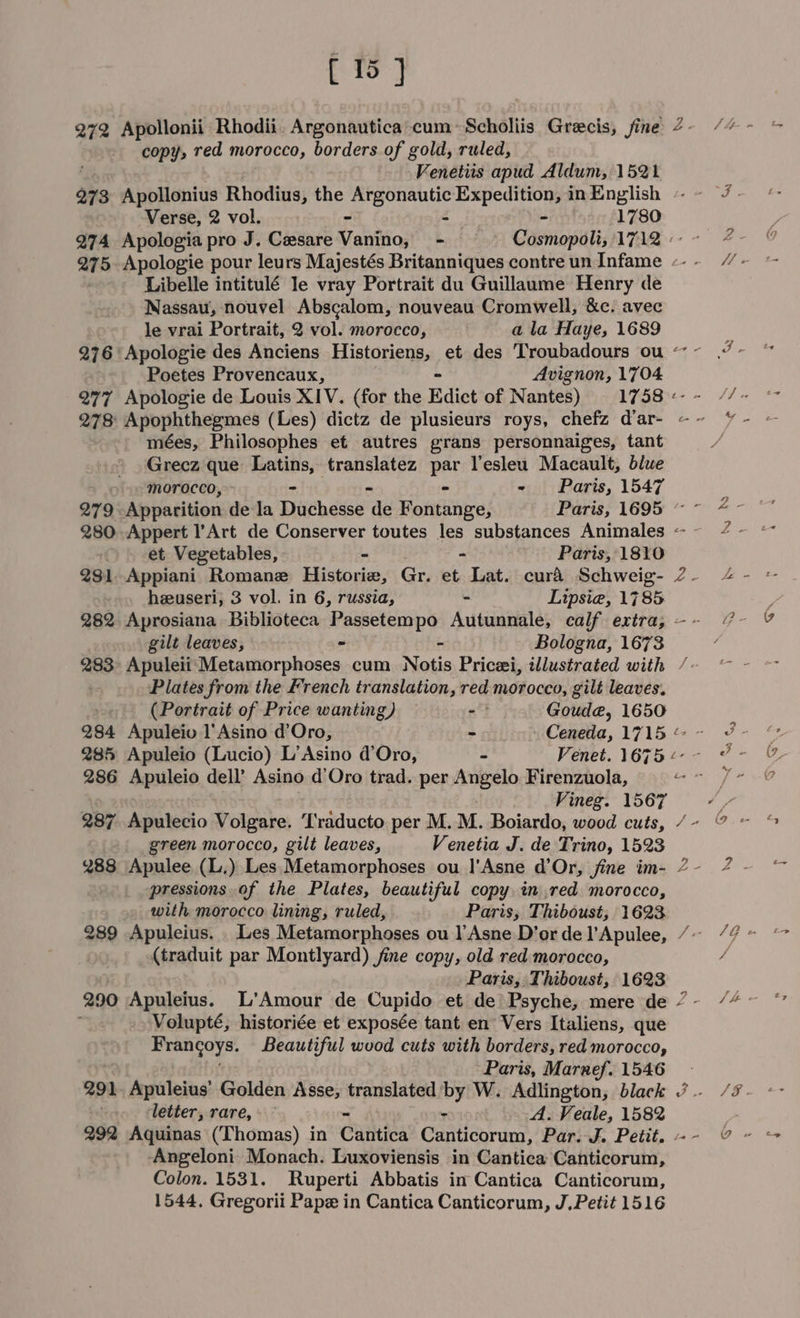 [ 15 ]
272 Apollonii Rhodii Argonautica cum Scholiis Græcis, fine 2 - 14 - -
copy, red morocco, borders of gold, ruled,
Venetiis apud Aldum, 1521
273 Apollonius Rhodius, the Argonautic Expedition, in English - - 3 - -
Verse, 2 vol. - - - 1780
274 Apologia pro J. Cæsare Vanino, - Cosmopoli, 1712 - - 2 - 6
275 Apologie pour leurs Majestés Britanniques contre un Infame - - 11 - -
Libelle intitulé le vray Portrait du Guillaume Henry de
Nassau, nouvel Abscalom, nouveau Cromwell, &c. avec
le vrai Portrait, 2 vol. morocco, a la Haye, 1689
276 Apologie des Anciens Historiens, et des Troubadours ou
Poetes Provencaux, - Avignon, 1704
277 Apologie de Louis XIV. (for the Edict of Nantes) 1758
278 Apophthegmes (Les) dictz de plusieurs roys, chefz d'ar-
mées, Philosophes et autres grans personnaiges, tant
Grecz que Latins, translatez par l'esleu Macault, blue
morocco, - - - - Paris, 1547
279 Apparition de la Duchesse de Fontange, Paris, 1695
280 Appert l'Art de Conserver toutes les substances Animales - - 2 - -
et Vegetables, - - Paris, 1810
281 Appiani Romanæ Historiæ, Gr. et Lat. curâ Schweig-
hæuseri, 3 vol. in 6, russia, - Lipsiæ, 1785
282 Aprosiana Biblioteca Passetempo Autunnale, calf extra,
gilt leaves, - - Bologna, 1673
283 Apuleii Metamorphoses cum Notis Pricæi, illustrated with
Plates from the French translation, red morocco, gilt leaves.
(Portrait of Price wanting) - Goudæ, 1650
284 Apuleio l'Asino d'Oro, - Ceneda, 1715
285 Apuleio (Lucio) L'Asino d'Oro, - Venet. 1675
286 Apuleio dell' Asino d'Oro trad. per Angelo Firenzuola,
Vineg. 1567
287 Apulecio Volgare. Traducto per M. M. Boiardo, wood cuts,
green morocco, gilt leaves, Venetia J. de Trino, 1523
288 Apulee (L.) Les Metamorphoses ou l'Asne d'Or, fine im- 2 - 2 - -
pressions of the Plates, beautiful copy in red morocco,
with morocco lining, ruled, Paris, Thiboust, 1623
289 Apuleius. Les Metamorphoses ou l'Asne D'or de l'Apulee,
(traduit par Montlyard) fine copy, old red morocco,
Paris, Thiboust, 1623
290 Apuleius. L'Amour de Cupido et de Psyche, mere de
Volupté, historiée et exposée tant en Vers Italiens, que
Françoys. Beautiful wood cuts with borders, red morocco,
Paris, Marnef. 1546
291 Apuleius' Golden Asse, translated by W. Adlington, black
letter, rare, - - A. Veale, 1582
292 Aquinas (Thomas) in Cantica Canticorum, Par. J. Petit.
Angeloni Monach. Luxoviensis in Cantica Canticorum,
Colon. 1531. Ruperti Abbatis in Cantica Canticorum,
1544. Gregorii Papæ in Cantica Canticorum, J. Petit 1516